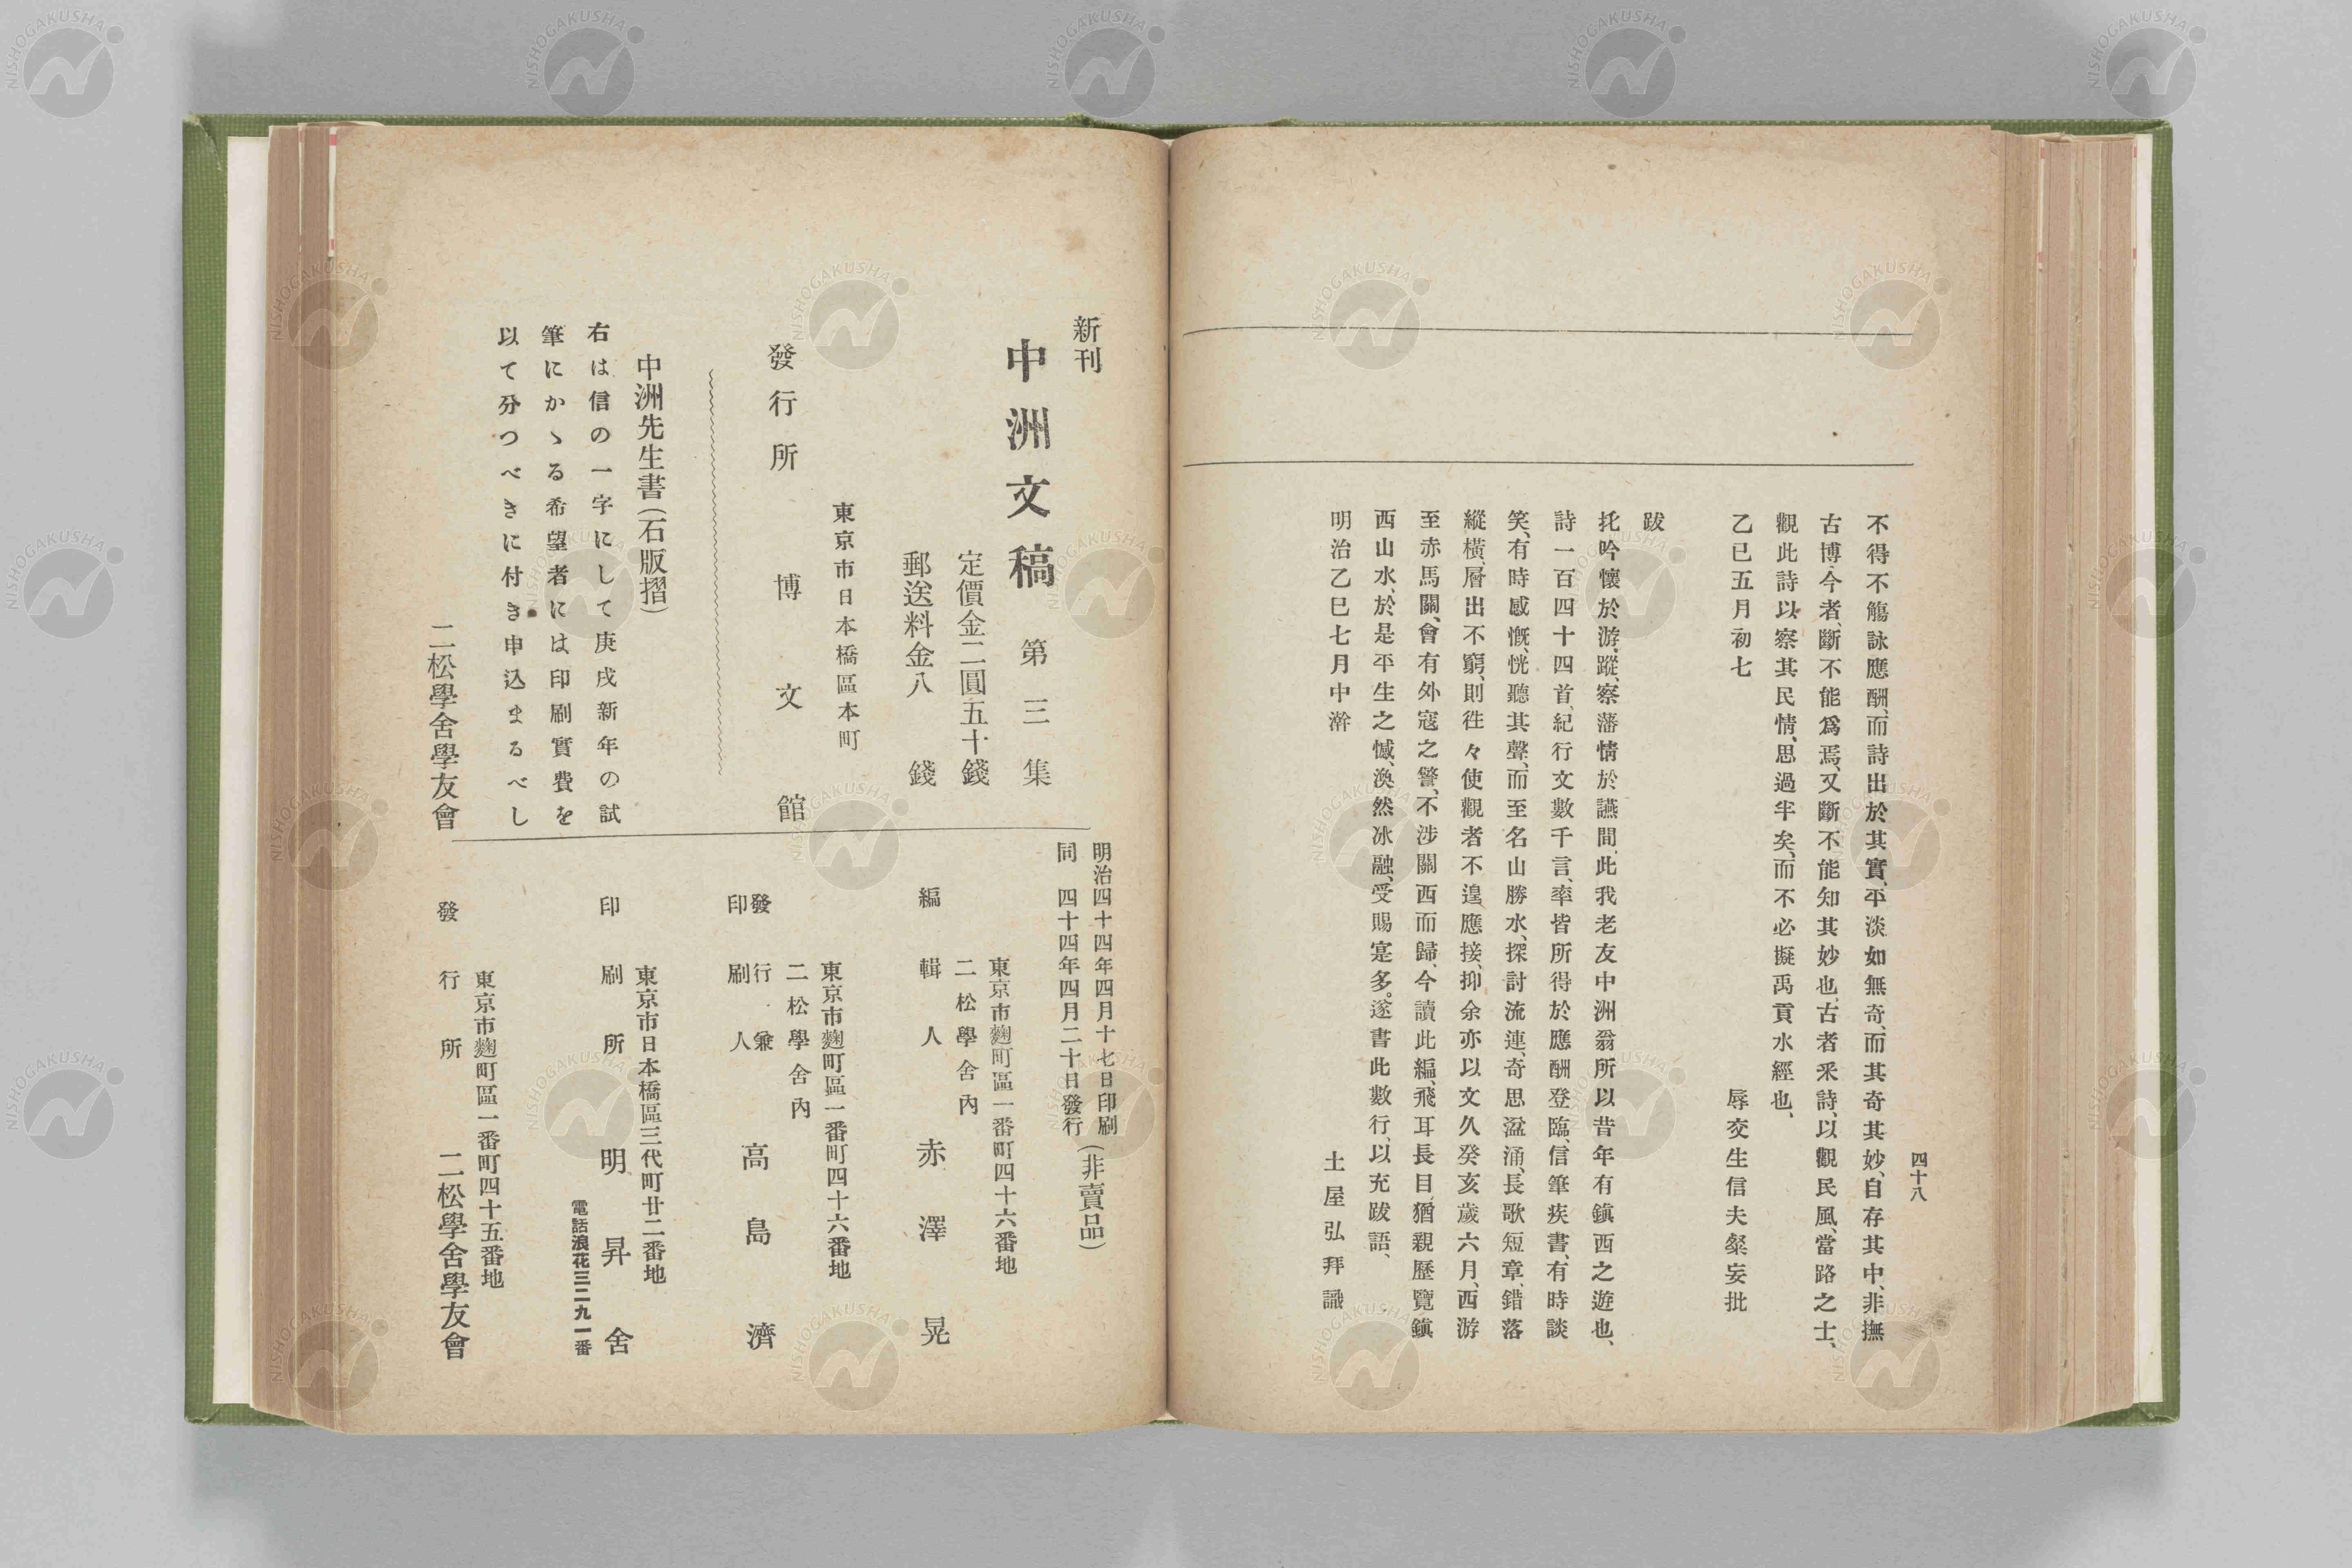 四十八
不得不觴詠應酬、而詩出於其實、平淡如無奇、而其奇其妙、自存其中、非撫
古博今者、斷不能爲焉、又斷不能知其妙也、古者釆詩、以觀民風、當路之士、
觀此詩以察其民情、思過半矣、而不必擬禹貢水經也、
乙巳五月初七　辱交生信夫粲妄批
跋
托吟懷於游蹤、察藩情於讌間、此我老友中洲翁所以昔年有鎭西之遊也、
詩一百四十四首、紀行文數千言、率皆所得於應酬登臨、信筆疾書、有時談
笑、有時感慨、恍聽其聲、而至名山勝水、探討流連、奇思湓涌、長歌短章、錯落
縱橫、層出不窮、則徃々使觀者不遑應接、抑余亦以文久癸亥歲六月、西游
至赤馬關、會有外寇之警、不涉關西而歸、今讀此編、飛耳長目、猶親歷覽鎭
西山水、於是平生之憾、渙然冰融、受賜寔多。遂書此數行、以充跋語、
明治乙巳七月中澣　土屋弘拜識
新刊
中洲文稿　第三集
定價金二圓五十錢
郵送料金八錢
東京市日本橋區本町
發行所　博文館
中洲先生書（石版摺）
右は信の一字にして庚戌新年の試
筆にかゝる希望者には印刷實費を
以て分つべきに付き申込まるべし
二松學舍學友會
明治四十四年四月十七日印刷
同　四十四年四月二十日發行
（非賣品）
東京市麴町區一番町四十六番地
二松學舍內
編輯人　赤澤晃
東京市麴町區一番町四十六番地
二松學舍內
發行兼
印刷人　高島濟
東京市日本橋區三代町廿二番地
印刷所　明昇舍
電話浪花三二九一番
東京市麴町區一番町四十五番地
發行所　二松學舍學友會
NISHOGAKUSHA